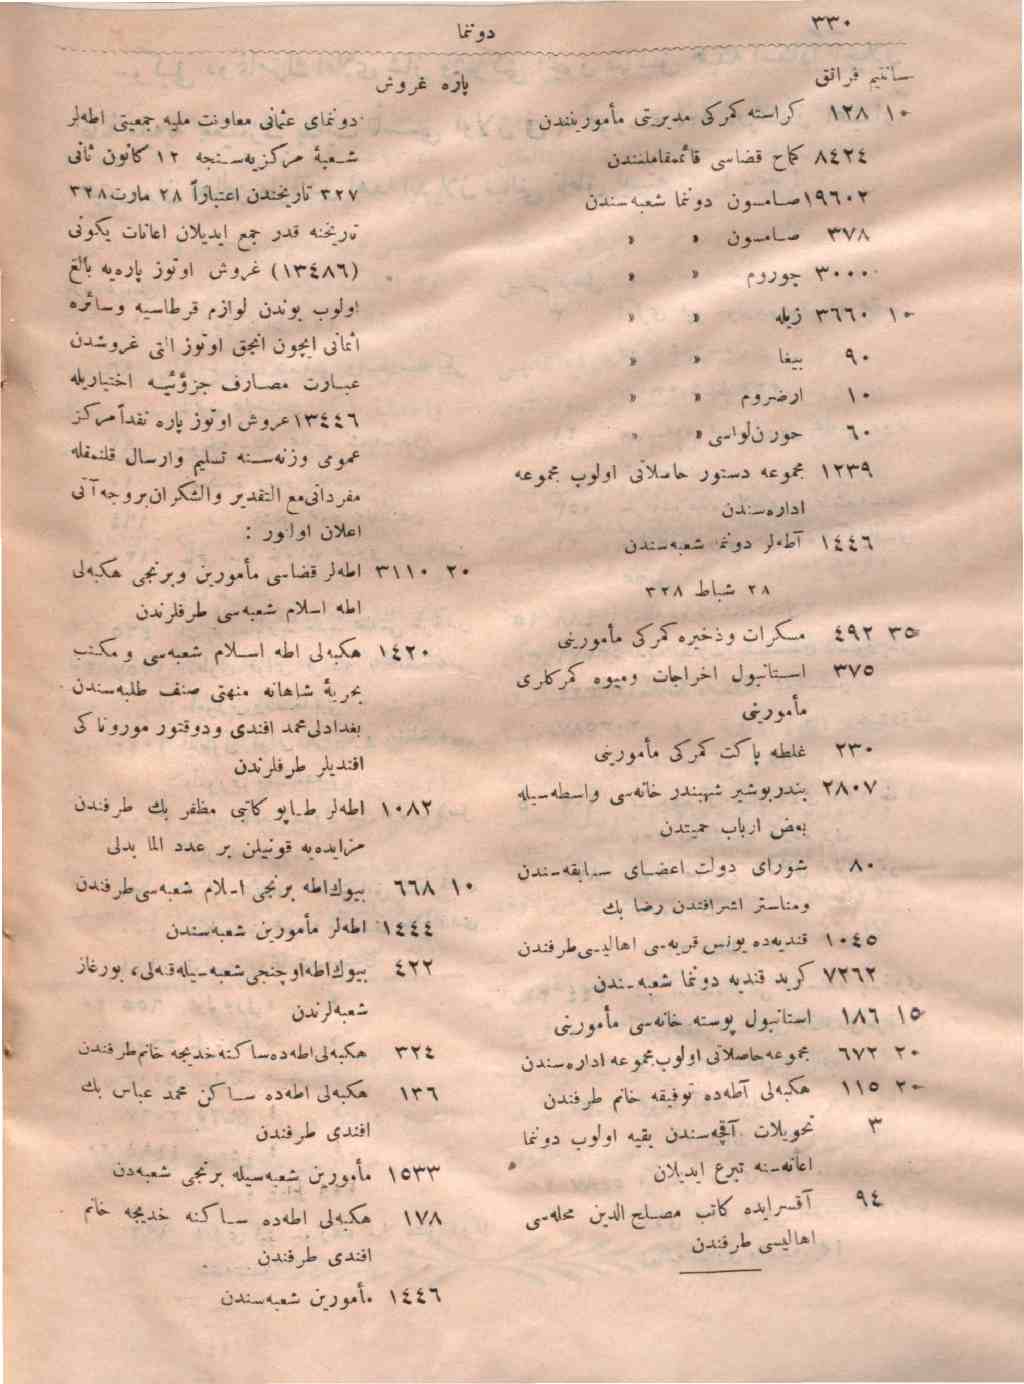 ٣٣٠
دوننما
سانتیم فرانق
١٠ ١٢٨ کراسته کمرکی مدیریتی مأمورینندن
٨٤٢٤ کماح قضاسی قائممقاملغندن
١٩٦٠٢ صامسون دوننما شعبه‌سندن
٣٧٨ صامسون » »
٣٠٠٠ چوروم » »
١٠ ٣٦٦٠ زیله » »
٩٠ بیغا » »
١٠ ارضروم » »
٦٠ »
١٢٣٩ مجموعه دستور حاصلاتی اولوب مجموعه
اداره‌سندن
١٤٤٦ آطه‌لر دوننما شعبه‌سندن
٢٨ شباط ٣٢٨
٣٥ ٤٩٢ مسکرات وذخیره کمرکی مأمورینی
٣٧٥ استانبول اخراجات ومیوه کمرکلری
مأمورینی
٢٣٠ غلطه پاکت کمرکی مأمورینی
٢٨٠٧ بندربوشیر شهبندر خانه‌سی واسطه‌سیله
بعض ارباب حمیتدن
٨٠ شورای دولت اعضای سابقه‌سندن
ومناستر اشرافندن رضا بك
١٠٤٥ قندیه‌ده یونس قریه‌سی اهالیسی طرفندن
٧٢٦٢ کرید قندیه دوننما شعبه‌سندن
١٥ ١٨٦ استانبول پوسته خانه‌سی مأمورینی
٢٠ ٦٧٢ مجموعه حاصلاتی اولوب مجموعه اداره‌سندن
٢٠ ١١٥ هکبه‌لی آطه‌ده توفیقه خانم طرفندن
٣ تحویلات آقچه‌سندن بقیه اولوب دوننما
اعانه‌سنه تبرع ایدیلان
٩٤ آقسرایده کاتب مصلح الدین محله‌سی
اهالیسی طرفندن
پاره غروش
دوننمای عثمانی معاونت ملیه جمعیتی اطه‌لر
شعبهٔ مرکزیه‌سنجه ١٢ کانون ثانی
٣٢٧ تاریخندن اعتباراً ٢٨ مارت ٣٢٨
تاریخنه قدر جمع ایدیلان اعانات یکونی
(١٣٤٨٦) غروش اوتوز پاره‌یه بالغ
اولوب بوندن لوازم قرطاسیه وسائره
اثمانی ایچون انجق اوتوز التی غروشدن
عبارت مصارف جزؤئیه اختیاریله
١٣٤٤٦ غروش اوتوز پاره نقداً مرکز
عمومی وزنه‌سنه تسلیم وارسال قلنمقله
مفرداتی مع التقدیر والشکران بروجه آتی
اعلان اولنور :
٢٠ ٣١١٠ اطه‌لر قضاسی مأمورین وبرنجی هکبه‌لی
اطه اسلام شعبه‌سی طرفلرندن
١٤٢٠ هکبه‌لی اطه اسلام شعبه‌سی ومکتب
بحریهٔ شاهانه منهتی صنف طلبه‌سندن
بغدادلی محمد افندی ودوقتور موروناکی
افندیلر طرفلرندن
١٠٨٢ اطه‌لر طاپو کاتبی مظفر بك طرفندن
مزایده‌یه قونیلن بر عدد الما بدلی
١٠ ٦٦٨ بیوك اطه برنجی اسلام شعبه‌سی طرفندن
١٤٤٤ اطه‌لر مأمورین شعبه‌سندن
٤٢٢ بیوك اطه اوچنجی شعبه‌سیله قنه‌لی، بورغاز
شعبه‌لرندن
٣٢٤ هکبه‌لی اطه‌ده ساکنه خدیجه خانم طرفندن
١٣٦ هکبه‌لی اطه‌ده ساکن محمد عباس بك
افندی طرفندن
١٥٣٣ مأمورین شعبه‌سیله برنجی شعبه‌دن
١٧٨ هکبه‌لی اطه‌ده ساکنه خدیجه خانم
افندی طرفندن
١٤٤٦ مأمورین شعبه‌سندن